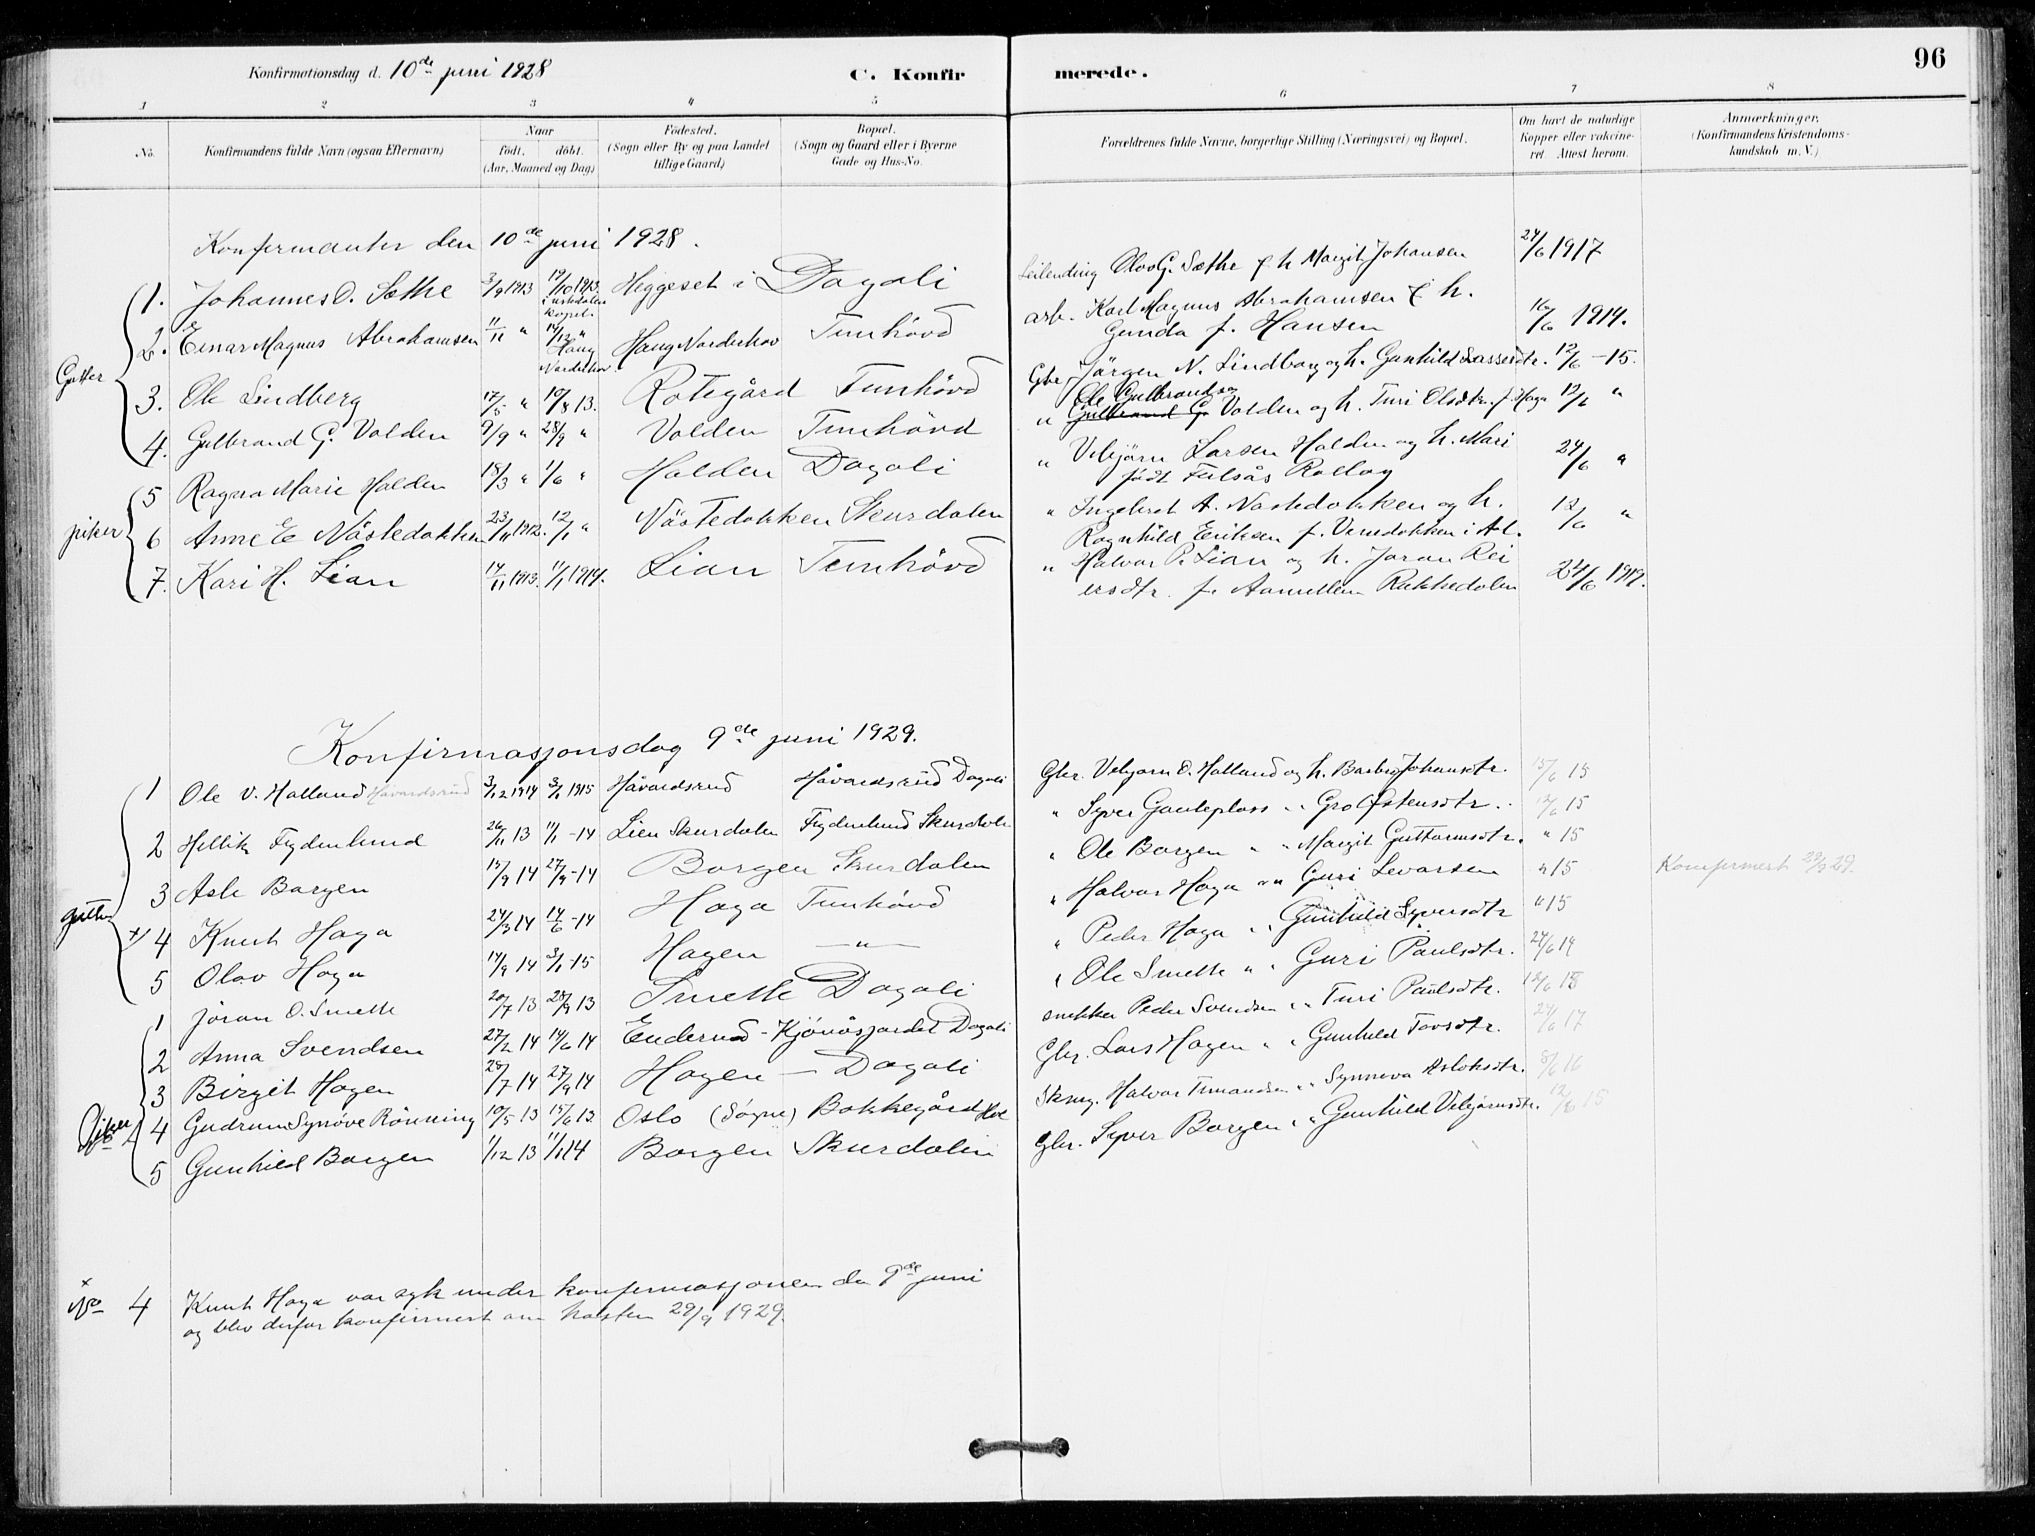 96
Konfirmationsdag d. 10de juni 1928
C. Konfirmerede.
1 2 3 4 5 6 7 8
No. Konfirmandens fulde Navn (ogsaa Efternavn) Naar født. døbt. (Aar, Maaned og Dag) Fødested. (Sogn eller By og paa Landet tillige Gaard) Bopæl. (Sogn og Gaard eller i Byerne Gade og Hus-No. Forældrenes fulde Navne, borgerlige Stilling (Næringsvei) og Bopæl. Om havt de naturlige Kopper eller vakcineret. Attest herom. Anmærkninger. (Konfirmandens Kristendomskundskab m. V.)
Konfirmanter den 10de juni 1928.
Gutter
1. Johannes O. Sæthe 3/9 1913 19/10 1913. i Uvdalen kapel. Heggeset i Dagali Leilending Olav G. Sæthe & h. Margit Johansen 24/6 1917
2. Einar Magnus Abrahamsen 11/11 " 14/12 " Haug Norderhov Haug Norderhov Tunhövd arb. Karl Magnus Abrahamsen & h. Gunda f. Hansen 16/6 1919.
3. Ole Lindberg 17/5 " 10/8 13. Rotegård Tunhövd Gbr. Jörgen N. Lindberg og h. Gunhild Lassesdtr. 12/6 -15.
4. Gulbrand G. Volden 9/9 " 28/9 " Volden Tunhövd " Ole Gulbrandsen Gulbrand G. Volden og h. Turi Olsdtr. f. Haga 12/6 "
piker
5 Ragna Marie Halden 18/3 " 1/6 " Halden Dagali " Vebjörn Larsen Halden og h. Mari født Fulsås Rollag 24/6 "
6 Anne E Nöstedokken 23/11 1912. 12/1 " Nöstedokken Skurdalen " Ingebret A. Nöstedokken og h. Ragnhild Eriksen f. Vennedokken i Aal. 12/6 "
7. Kari H. Lian 14/11 1913. 11/1 1914. Lian Tunhövd " Halvor P. Lian og h. Joran Reiersdtr. f. Aamellem Rukkedalen 24/6 1919.
Konfirmasjonsdag 9de juni 1929.
gutter
1 Ole V. Halland Håvardsrud 3/12 1914 3/1 1915 Håvardsrud Håvardsrud Dagali Gbr. Vebjørn O. Halland og h. Barbro Johansdtr. 15/6 15
2 Hellik Fydenlund 26/11 13 11/1 -14 Lien Skurdalen Fydenlund Skurdalen " Syver Gauteplass " " Gro Østensdtr. 12/6 15
3 Asle Borgen 15/9 14 27/9 -14 Borgen Skurdalen " Ole Borgen " " Margit Guttormsdtr. " 15
x/ 4 Knut Haga 24/3 14 14/6 -14 Haga Tunhövd " Halvor Haga " " Guri Levorsen " 15 Konfirmert 29/9 29.
5 Olav Hagen 14/9 14 3/1 -15 Hagen — " — " Peder Haga " " Gunhild Syversdtr " 15
Piker
1 Jöran O. Smette 20/7 13 28/9 13 Smette Dagali " Ole Smette " " Guri Paulsdtr. 24/6 19
2 Anna Svendsen 27/2 14 14/6 14 Enderud - Kjönåsjordet Dagali snekker Peder Svendsen " " Turi Paulsdtr. 12/6 18
3 Birgit Hagen 28/7 14 27/9 14 Hagen — Dagali Gbr. Lars Hagen " " Gunhild Tovsdtr. 24/6 17
4 Gudrun Synöve Rönning 10/5 13 15/6 13 Oslo (Sogne) Bakkegård Hol Skrug. Halvor Tmandsen " " Synneva Aslaksdtr. 8/6 16
5 Gunhild Borgen 1/12 13 11/1 14 Borgen Skurdalen Gbr. Syver Borgen " " Gunhild Vebjörnsdtr. 12/6 15
x No 4 Knut Haga var syk under konfirmasjonen den 9de juni
og blev derfor konfirmert om høsten 29/9 1929.